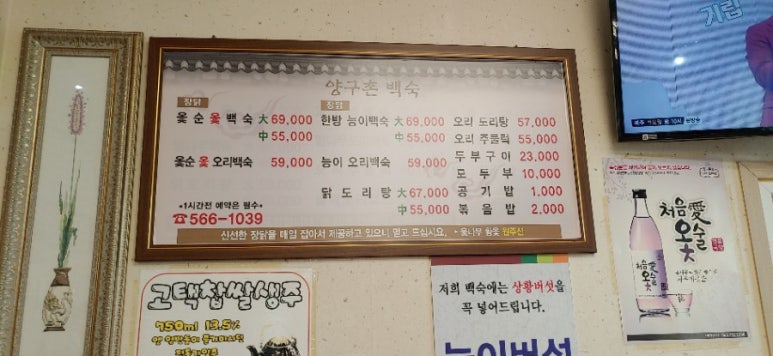 기립
양구촌 백숙
장닭
옻순 옻 백숙 大 69,000
中 55,000
옻순 옻 오리백숙 59,000
*1시간전 예약은 필수*
☎566-1039
장닭
한방 능이백숙 大 69,000
中 55,000
능이 오리백숙 59,000
닭 도리탕 大 67,000
中 55,000
오리 도리탕 57,000
오리 주물럭 55,000
두부구이 23,000
모두부 10,000
공기밥 1,000
볶음밥 2,000
신선한 장닭을 매일 잡아서 제공하고 있으니 믿고 드십시요.
원주산
고택찹쌀생주
750ml 13.5%
저희 백숙에는 상황버섯을
꼭 넣어드립니다.
능이버섯
처음愛
옻술
처음愛
옻술